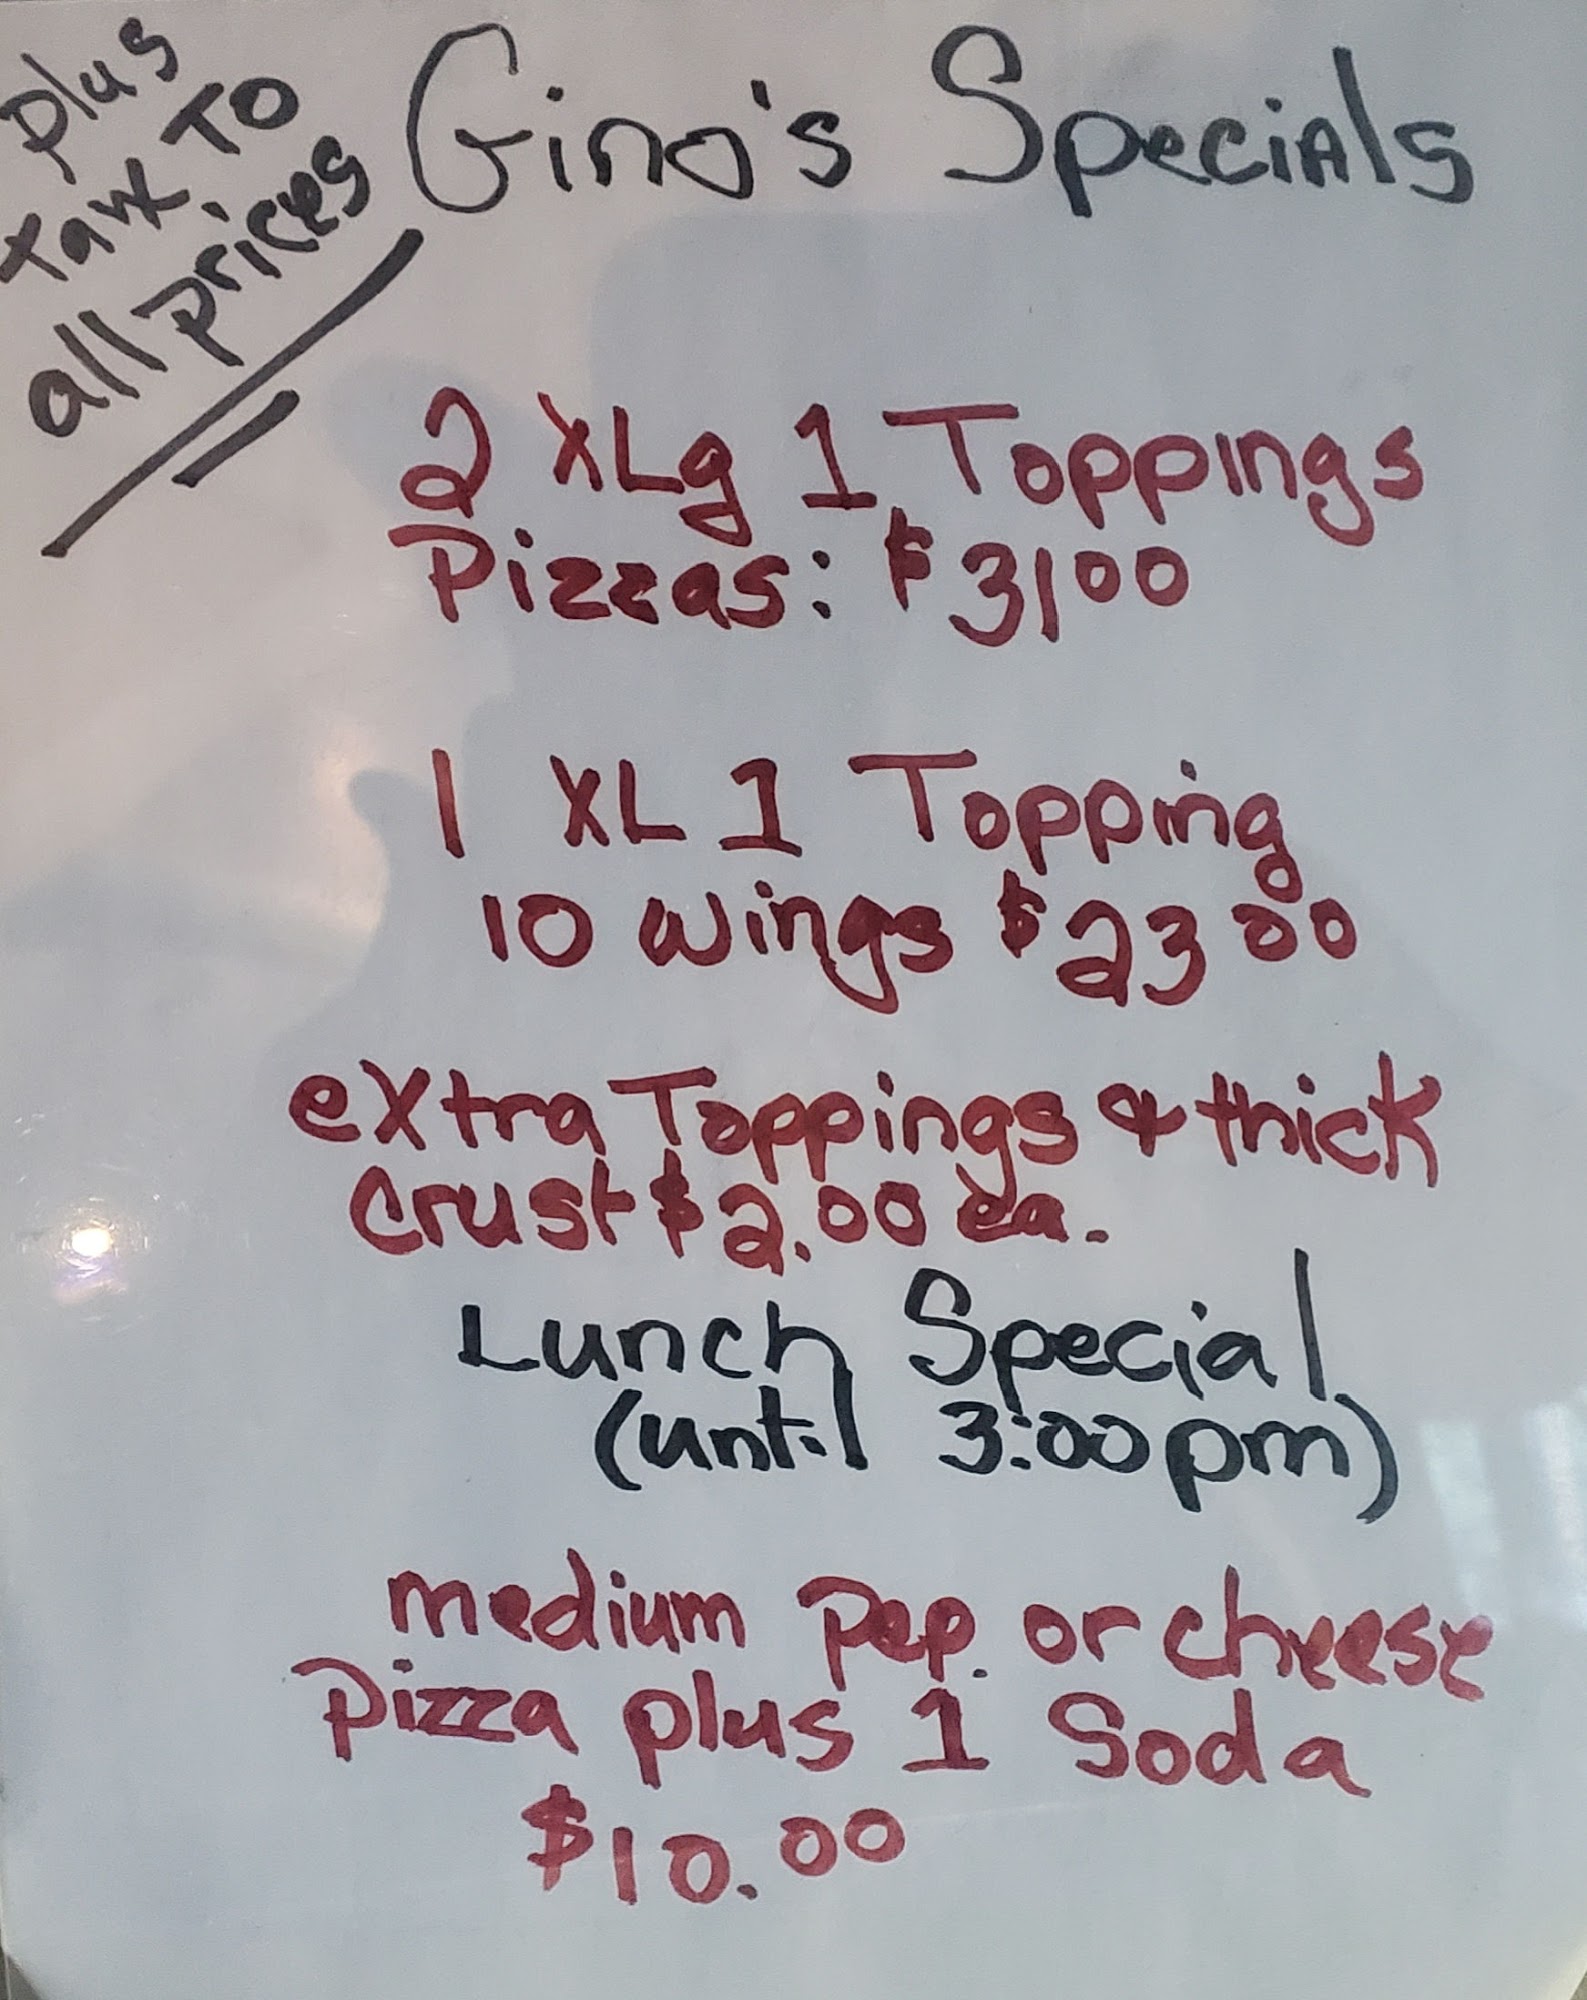 plus
tax TO
all prices
Gino's Specials
2 XLg 1 Toppings
Pizzas: $3100
1 XL 1 Topping
10 wings $2300
extra Toppings & thick
crust $2.00 ea.
Lunch Special
(until 3:00pm)
medium Pep. or cheese
Pizza plus 1 Soda
$10.00